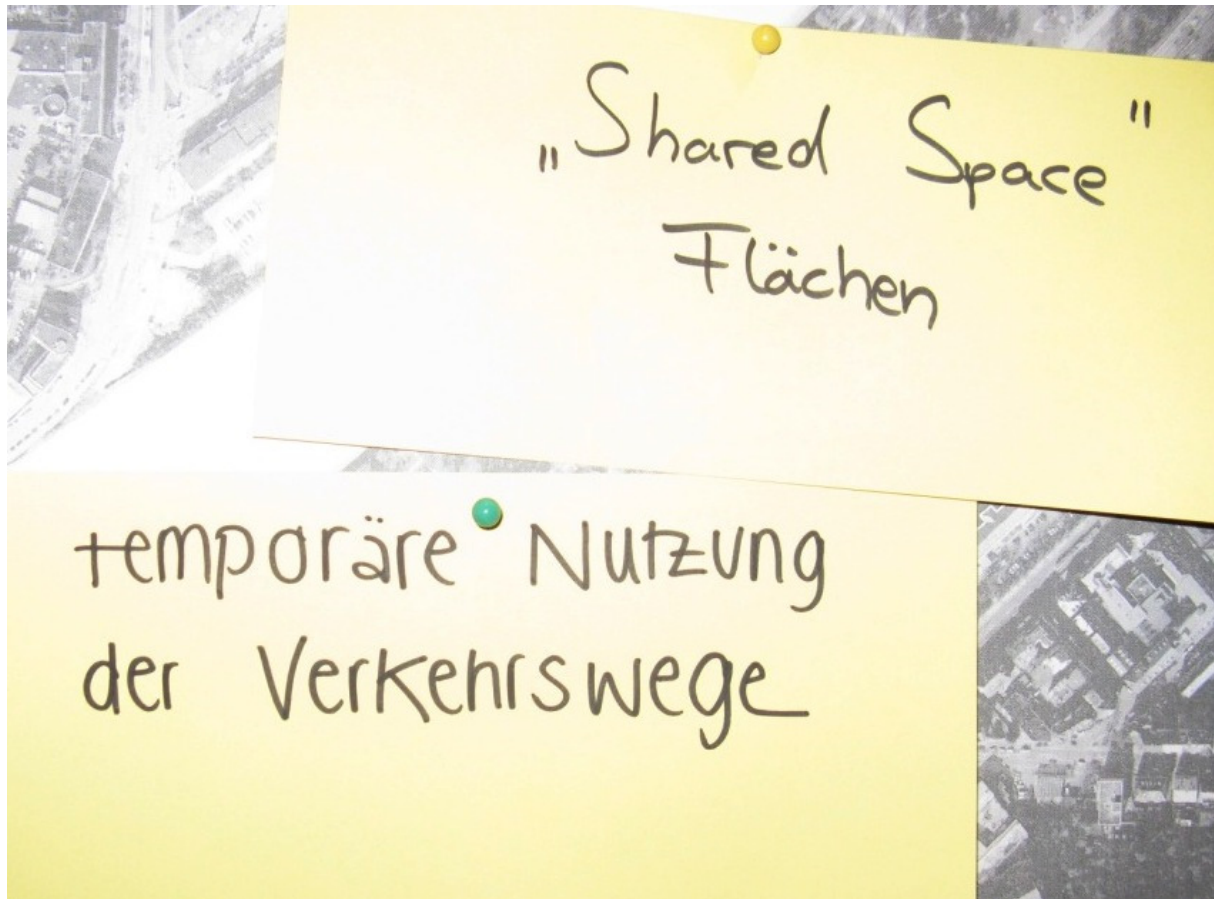 „Shared Space"
Flächen
temporäre Nutzung
der Verkehrswege